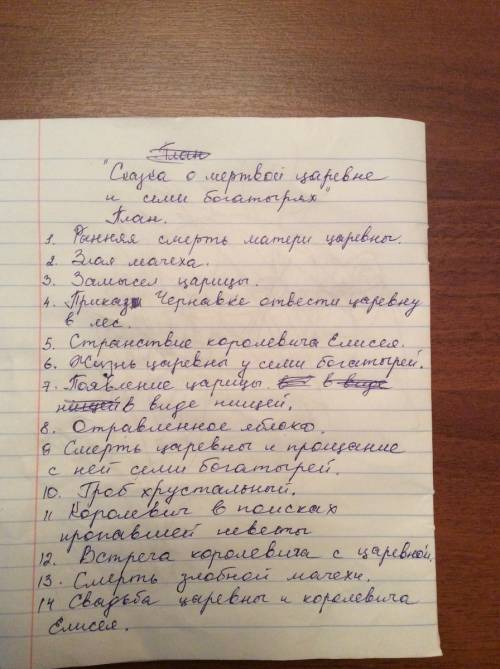 "Сказка о мертвой царевне
и семи богатырях"
План.
1. Ранняя смерть матери царевны.
2. Злая мачеха.
3. Замысел царицы.
4. Приказ Чернавке отвести царевну
в лес.
5. Странствие королевича Елисея.
6. Жизнь царевны у семи богатырей.
7. Появление царицы
в виде нищей.
8. Отравленное яблоко.
9 Смерть царевны и прощание
с ней семи богатырей.
10. Гроб хрустальный.
11 Королевич в поисках
пропавшей невесты
12. Встреча королевича с царевной.
13. Смерть злобной мачехи.
14 Свадьба царевны и королевича
Елисея.